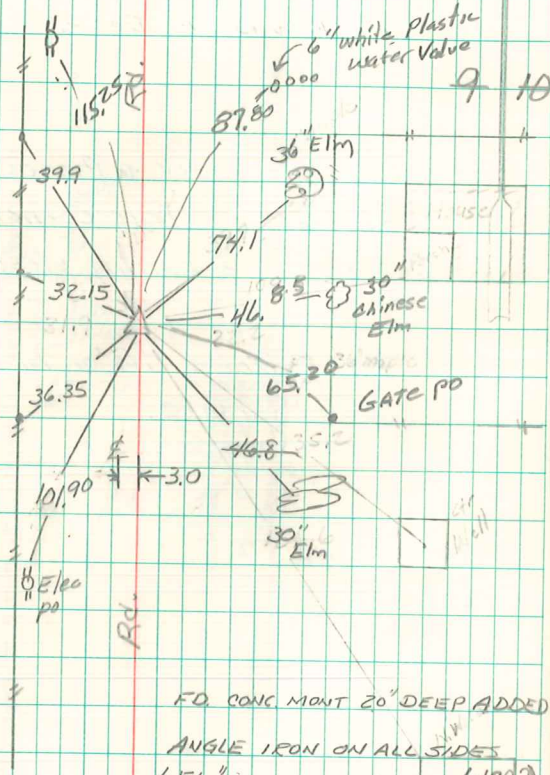 6" white Plastic
water Valve
9 10
115.25
Rd.
87.80
36" Elm
39.9
74.1
32.15
46.
8.5
30"
Chinese
Elm
65.20
GATE PO
36.35
46.8
35.2
₵
3.0
101.90
30"
Elm
Elec
po
Rd.
FD. CONC. MONT 20" DEEP ADDED
ANGLE IRON ON ALL SIDES